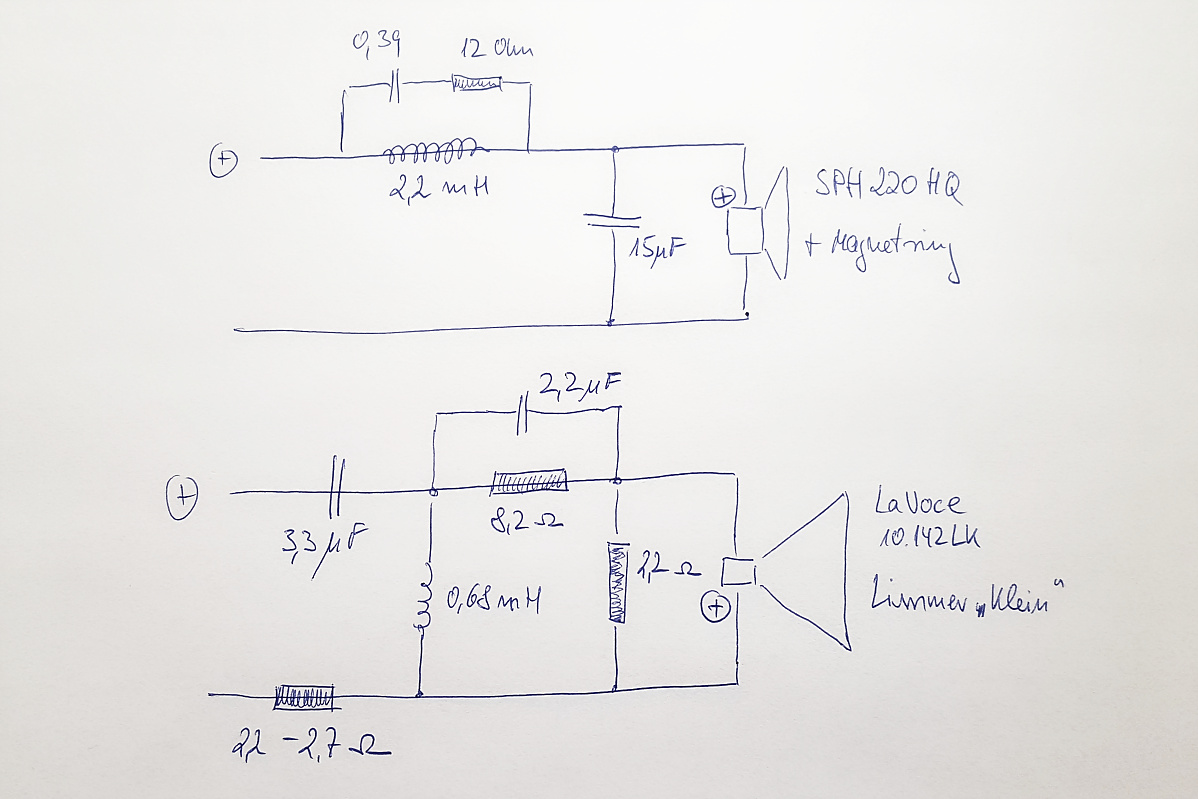 0,39 12 Ohm
+
2,2 mH
+
SPH 220 HQ
15µF
+ Magnetring
2,2µF
+
3,3 µF
8,2 Ω
LaVoce
10.142LK
2,2 Ω
0,68 mH
+
Limmer „Klein“
2,2 - 2,7 Ω